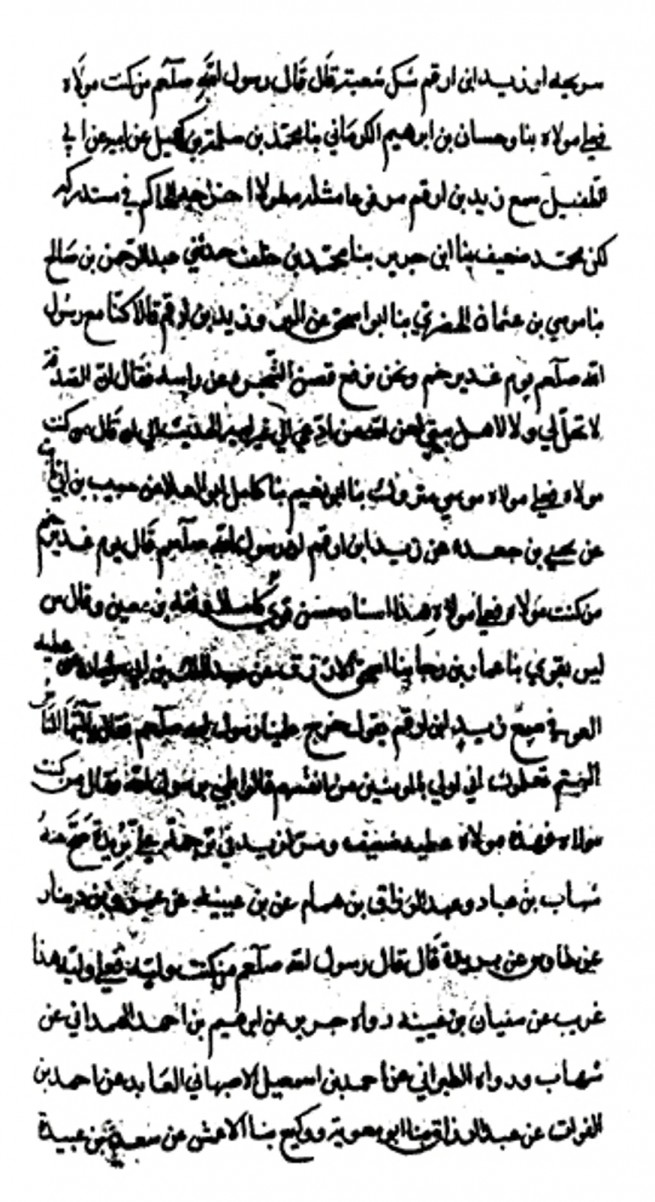 سريحه او زيد ابن ارقم شك شعبة قال قال رسول الله صلعم من كنت مولاه
فعلي مولاه بنا وحسان بن ابرهيم الكرماني بنا محمد بن سلمة بن كهيل عن ابيه عن ابي
الطفيل سمع زيد بن ارقم مثله مطولا الحاكم في مستدركه
لكن محمد ضعيف بنا ابن جرير بنا محمد بن خلف حدثني عبد الرحمن بن صالح
بنا موسي بن عثمان الحضرمي بنا ابو اسحق عن البرا وزيد بن ارقم قالا كنا مع رسول
الله صلعم يوم غدير خم ونحن نرفع غصن الشجرة عن راسه فقال ان الصدقة
لا تحل لي ولا لاهل بيتي لعن الله من ادعي الي غير ابيه الحديث الي ان قال من كنت
مولاه فعلي مولاه موسي متروك بنا ابو نعيم بنا كامل ابو العلا عن حبيب بن ابي ثابت
عن يحيي بن جعده عن زيد ابن ارقم ان رسول الله صلعم قال يوم غدير خم
من كنت مولاه فعلي مولاه هذا اسناد حسن قوي كامل وثقه بن معين وقال س
ليس بقوي بنا عمار بن رجا بنا اسحق الازرق عن عبد الملك بن ابي سليمان عن عطيه
العوفي سمع زيد ابن ارقم يقول خرج علينا رسول الله صلعم فقال يا ايها الناس
الستم تعلمون اني اولي بالمومنين من انفسهم قالوا بلي يرسول الله فقال من كنت
مولاه فهذا مولاه عطيه ضعيف
شهاب بن عباد وعبد الرزاق بن همام عن بن عيينه عن عمرو بن دينار
عن طاوس عن بريدة قال قال رسول الله صلعم من كنت وليه فعلي وليه هذا
غريب عن سفيان بن عيينه رواه جرير عن ابرهيم بن احمد الهمداني عن
شهاب ورواه الطبراني عن احمد بن اسمعيل الاصبهاني العابد عن احمد بن
الفرات عن عبد الرزاق بنا ابو معوية ووكيع بنا الاعمش عن سعد بن عبيدة